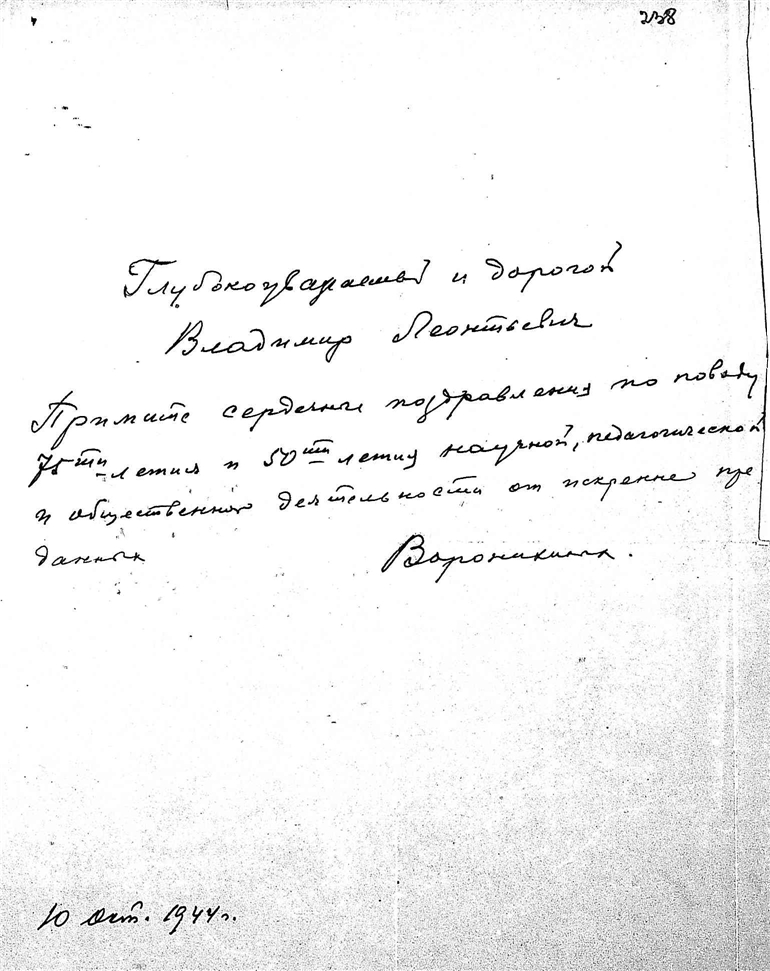 238
Глубокоуважаемый и дорогой
Владимир Леонтьевич
Примите сердечные поздравления по поводу
75ти-летия и 50ти летия научной, педагогической
и общественной деятельности от искренне пре
данных Воронихиных.
10 окт. 1944 г.